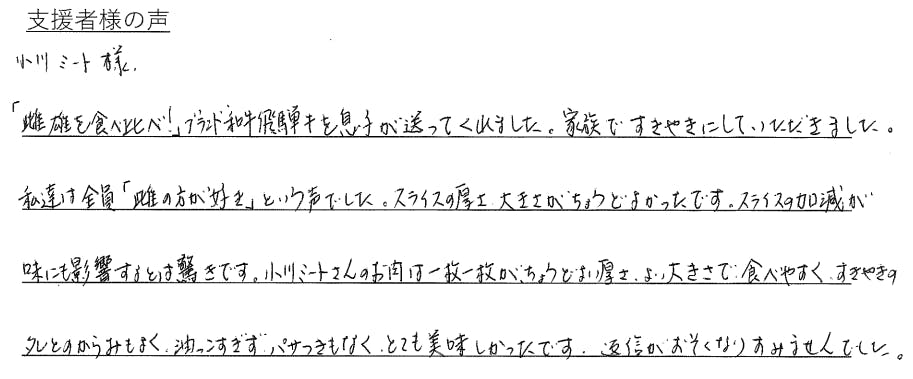 支援者様の声
小川ミート様.
「雌雄を食べ比べ!」ブランド和牛飛騨牛を息子が送ってくれました。家族ですきやきにしていただきました。
私達は全員「雌の方が好き」という声でした。スライスの厚さ、大きさがちょうどよかったです。スライスの加減が
味にも影響するとは驚きです。小川ミートさんのお肉は一枚一枚がちょうどよい厚さ、よい大きさで、食べやすく、すきやきの
タレとのからみもよく、油っこすぎず、パサつきもなく、とても美味しかったです。返信がおそくなりすみませんでした。